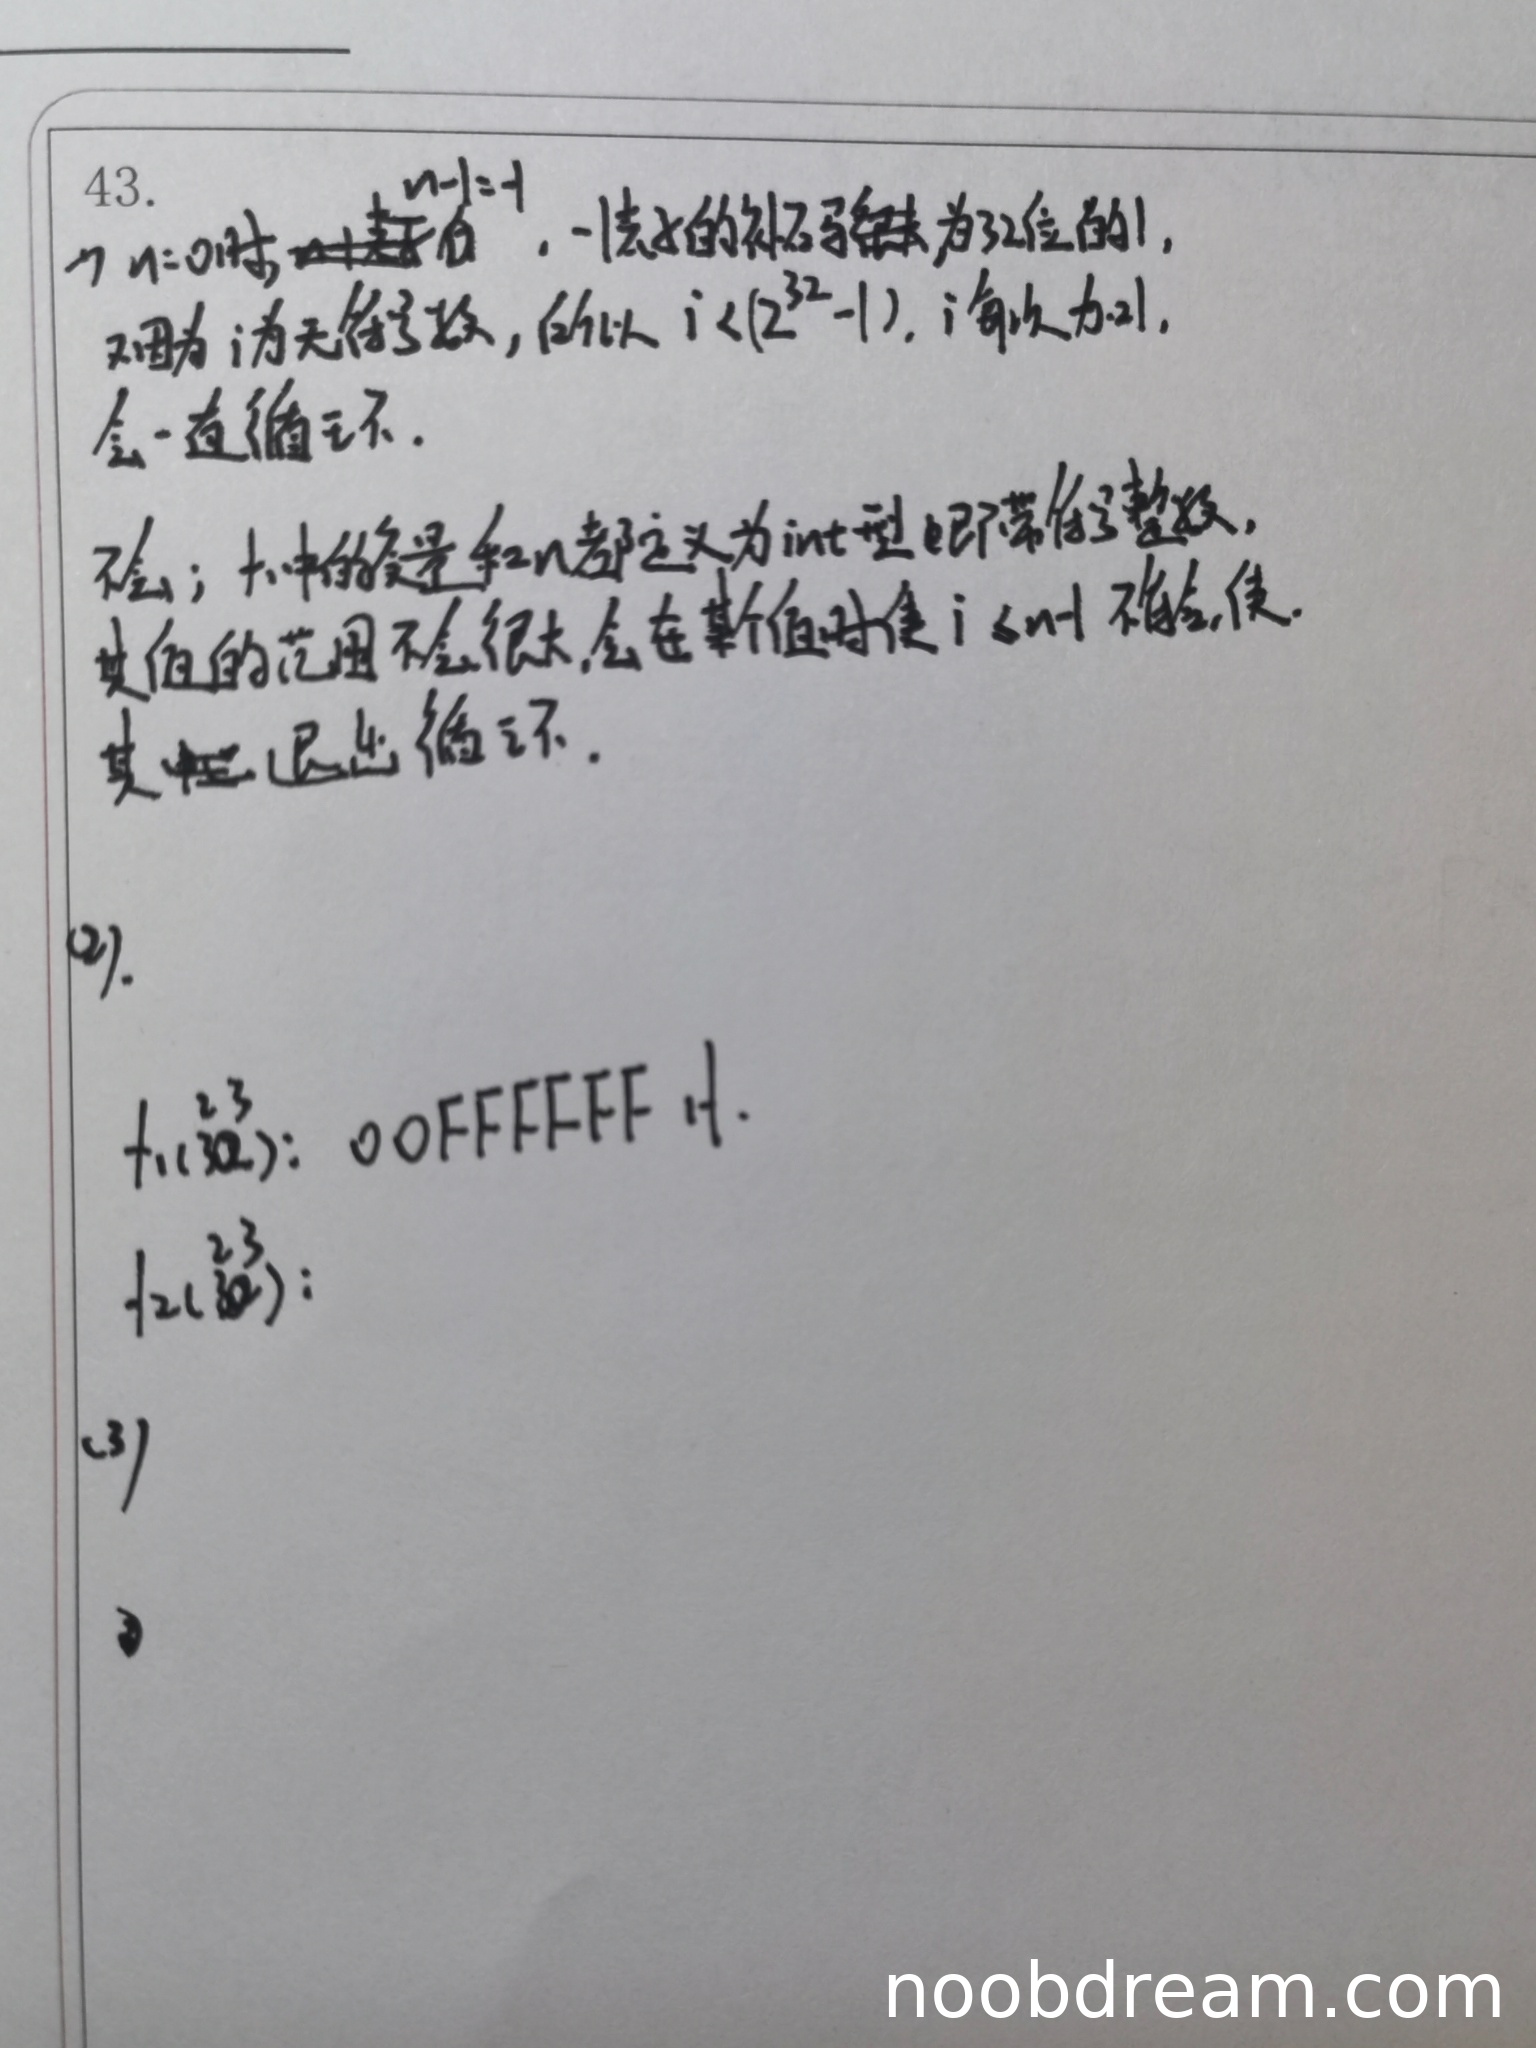 43.
n-1=-1
1) n=0时, . -1表示的补码 为32位的1,
又因为 i 为无符号数, 所以 i < (2³²-1). i 每次加1,
会一直循环.
不会; f1中的变量 和n都定义为int型 即带符号整数,
其值的范围不会很大, 会在某个值时使 i ≤ n-1 不 使.
其 退出循环.
(2).
23
f1( ): 00FFFFFF H.
23
f2( ):
(3)
noobdream.com